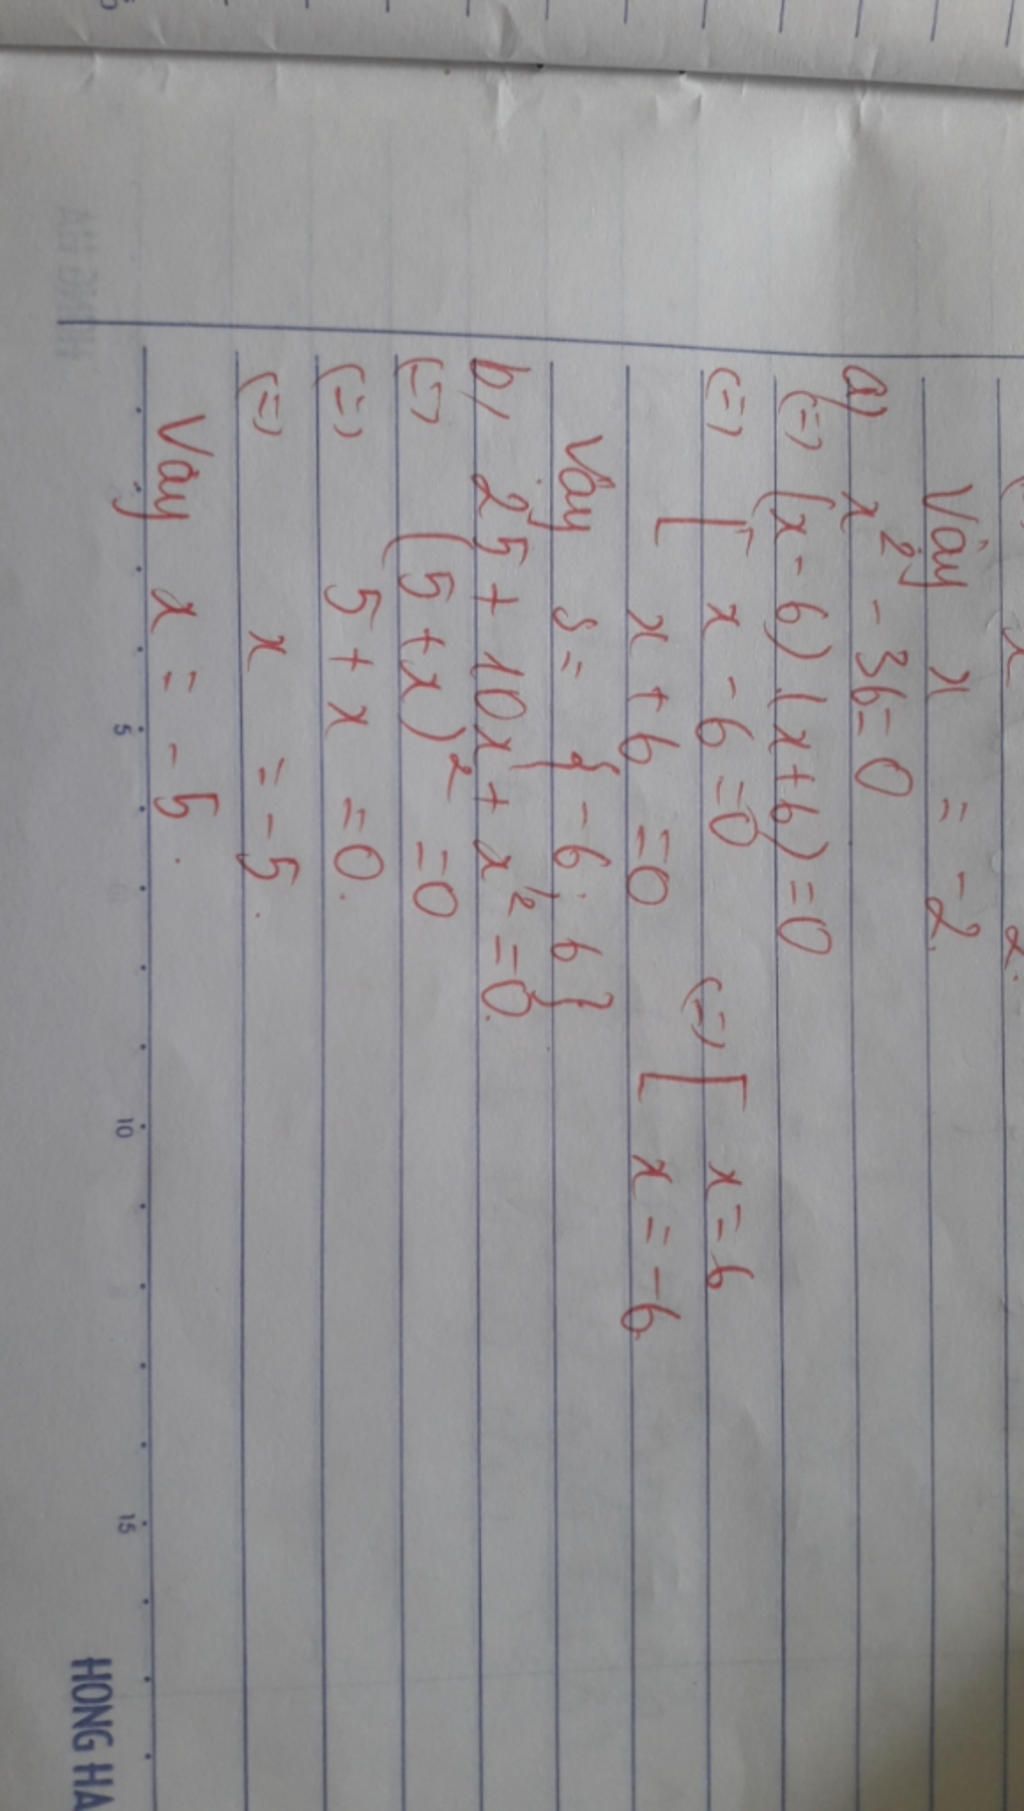 Vậy x = -2
a) x² - 36 = 0
(=) (x - 6) . (x + 6) = 0
(=) [ x - 6 = 0 (=) [ x = 6
x + 6 = 0 x = -6
Vậy S = { -6 ; 6 }
b, 25 + 10x + x² = 0.
(=) (5 + x)² = 0
(=) 5 + x = 0.
(=) x = -5.
Vậy x = -5.
5 10 15
HONG HA